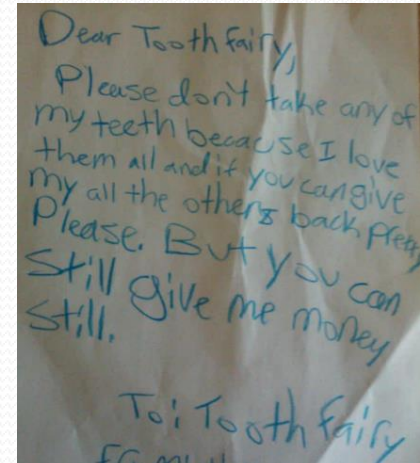 Dear Tooth fairy,
Please don't take any of
my teeth because I love
them all and if you can give
my all the others back pretty
Please. But you can
Still give me money
Still.
To: Tooth fairy